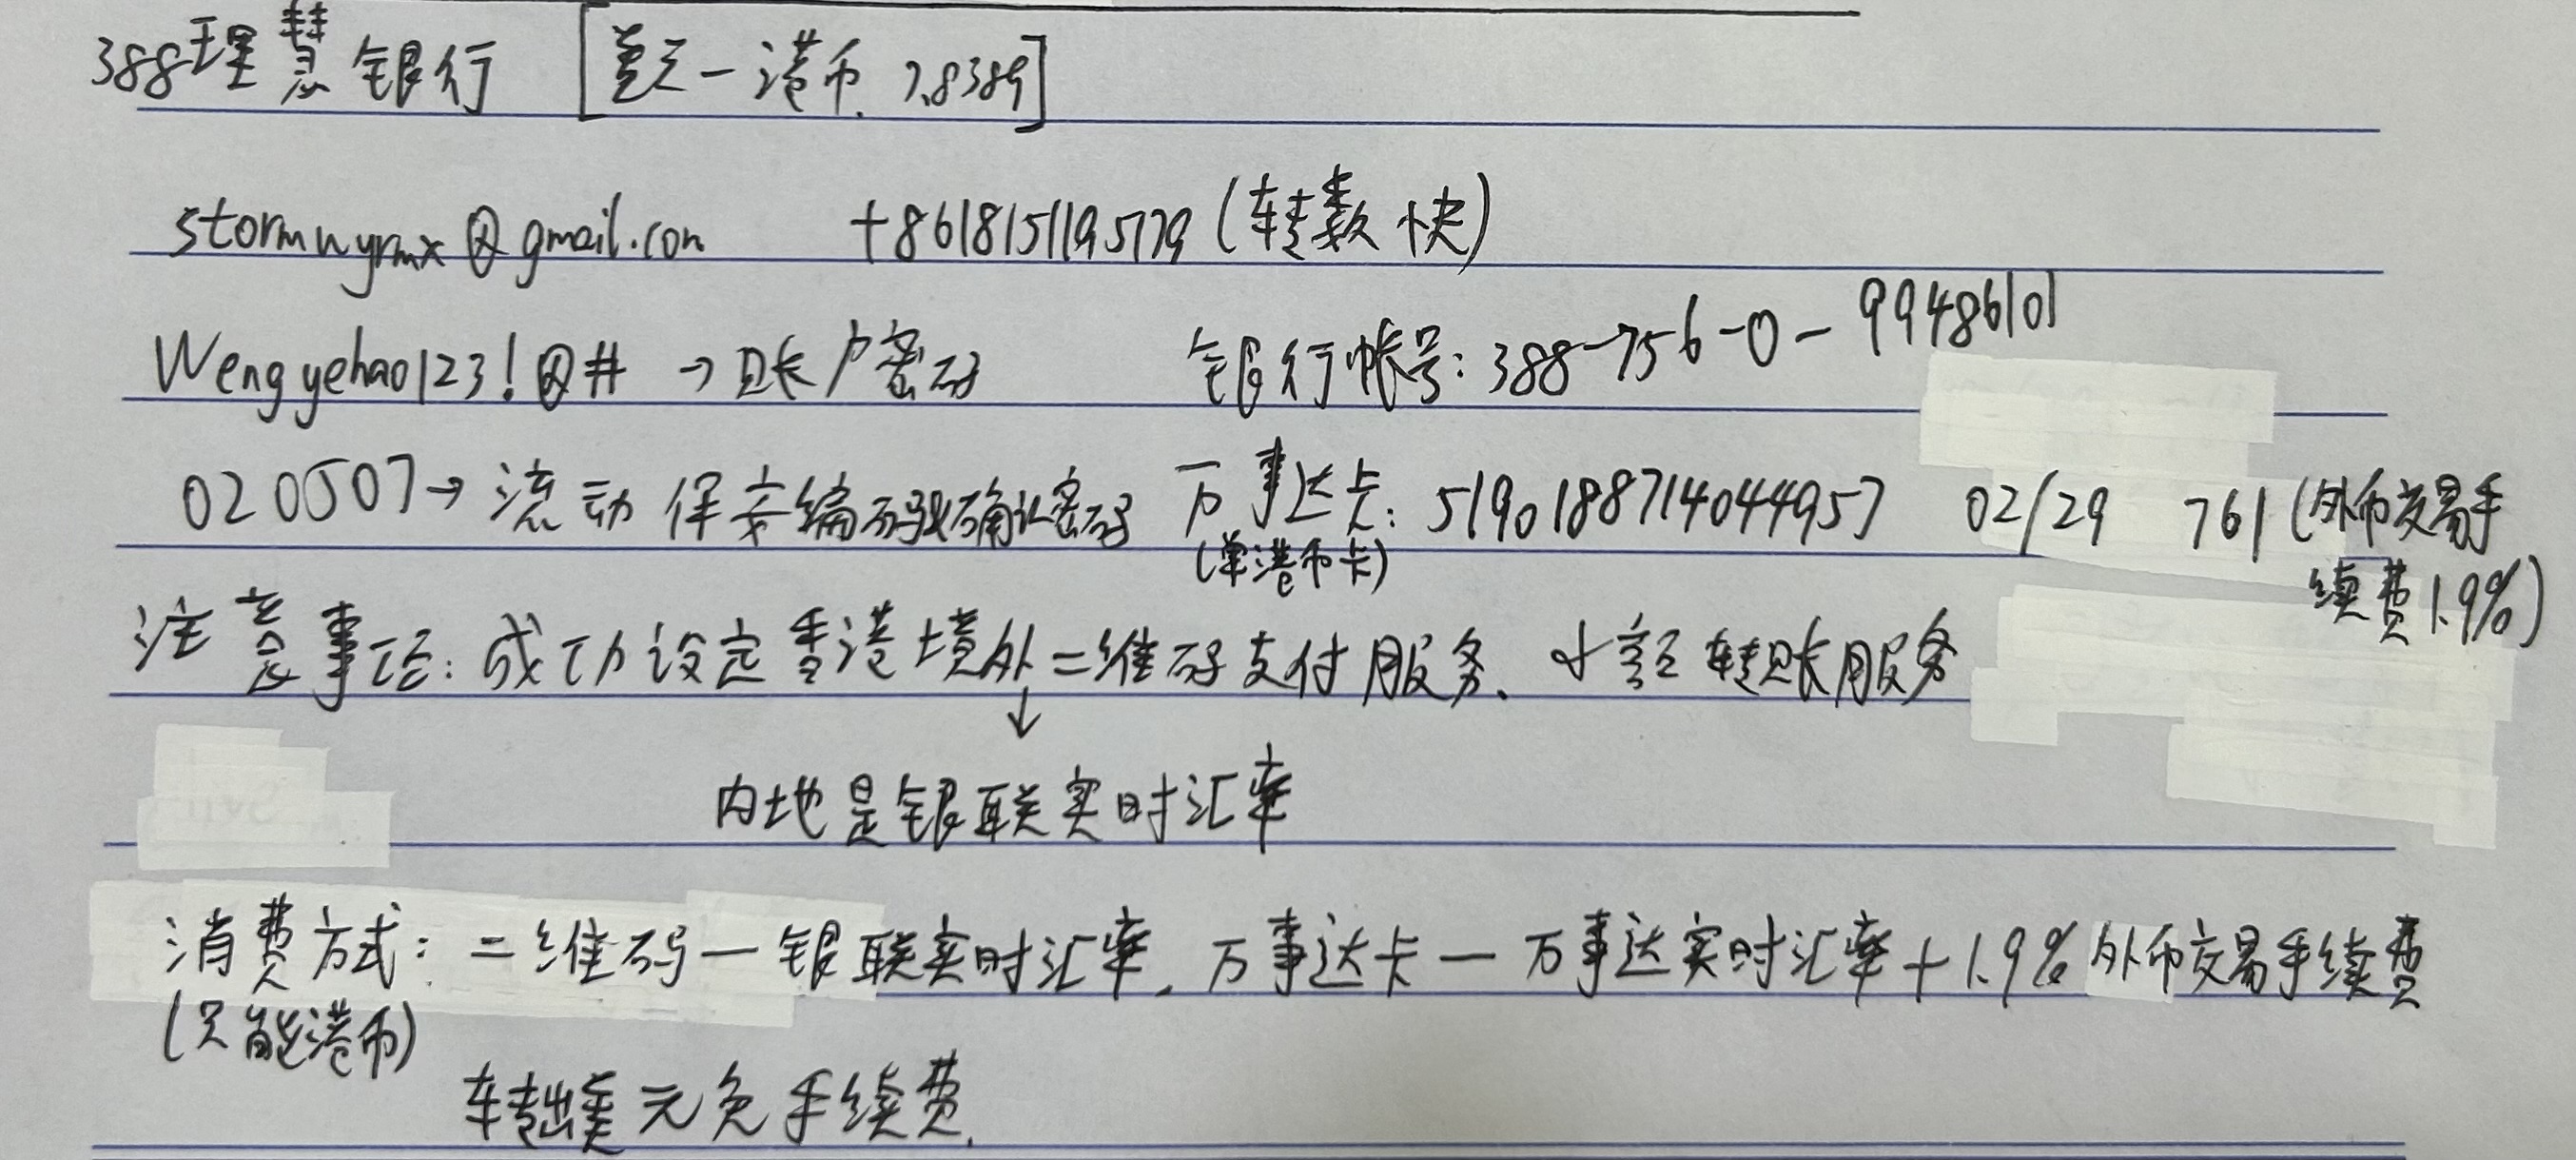 388理慧银行 [美元-港币.7.8389]
stormwyrmx@gmail.com +8618151195179(转数快)
Wengyehao123!@# → 账户密码 银行帐号:388-756-0-99486101
020507→流动保安编码或确认密码 万事达卡:5190188714044957 02/29 761(外币交易手
(单港币卡) 续费1.9%)
注意事项:成功设定香港境外二维码支付服务、小额转账服务
↓
内地是银联实时汇率
消费方式:二维码—银联实时汇率.万事达卡—万事达实时汇率+1.9%外币交易手续费
(只能港币)
转出美元免手续费.